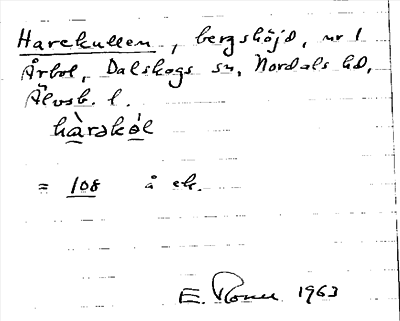 Harekullen, bergshöjd, nr 1
Årbol, Dalskogs sn, Nordals hd,
Älvsb. l.
hàrəkól
= 108 å ek.
E. 1963